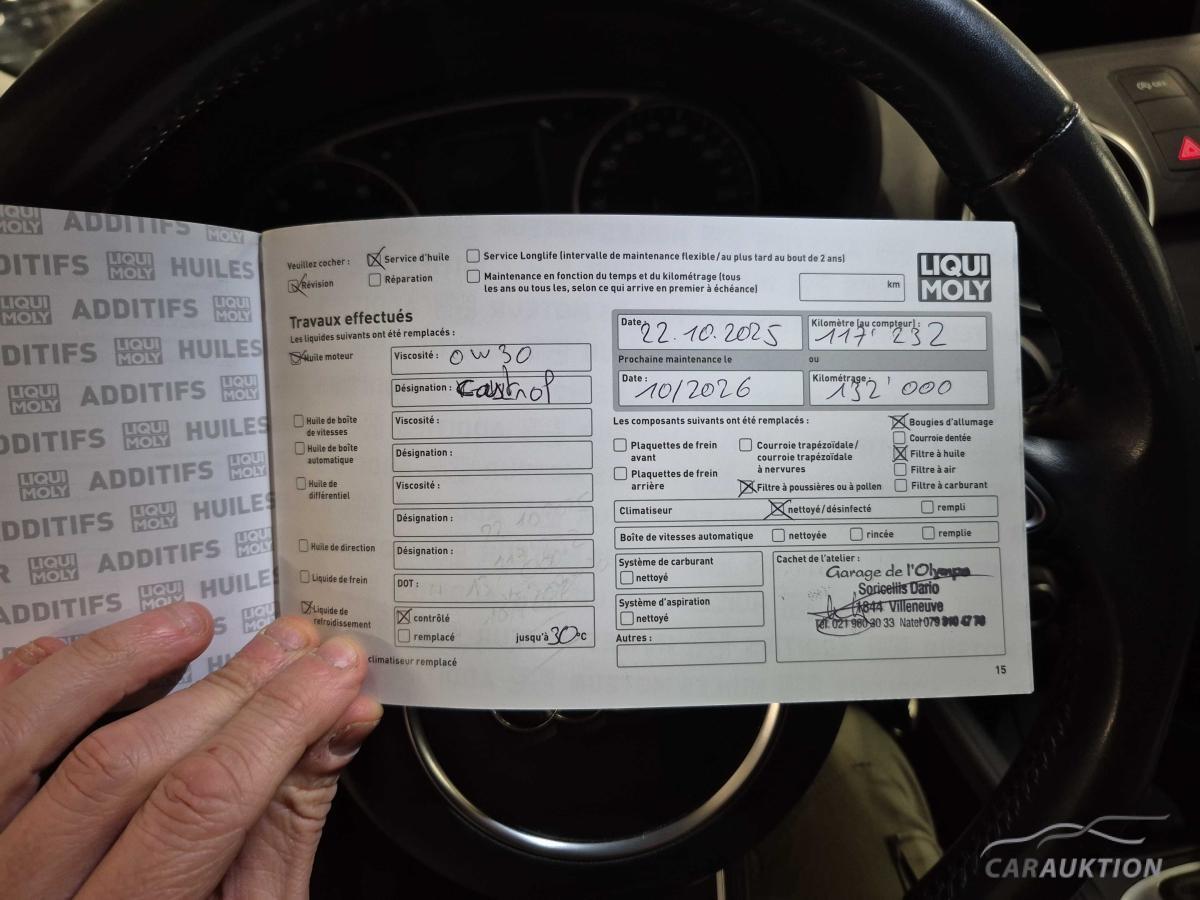 LIQUI MOLY ADDITIFS LIQUI MOLY
ADDITIFS LIQUI MOLY HUILES
LIQUI MOLY ADDITIFS
HUILES LIQUI MOLY HUILES
LIQUI MOLY ADDITIFS
HUILES LIQUI MOLY HUILES
LIQUI MOLY ADDITIFS LIQUI MOLY
ADDITIFS LIQUI MOLY HUILES
LIQUI MOLY ADDITIFS LIQUI MOLY
LIQUI MOLY HUILES
ADDITIFS LIQUI MOLY
LIQUI MOLY
Veuillez cocher :
Service d'huile
Révision
Réparation
Service Longlife (intervalle de maintenance flexible / au plus tard au bout de 2 ans)
Maintenance en fonction du temps et du kilométrage (tous
les ans ou tous les, selon ce qui arrive en premier à échéance)
km
LIQUI
MOLY
Travaux effectués
Les liquides suivants ont été remplacés :
Huile moteur
Viscosité : 0W30
Désignation : Castrol
Huile de boîte
de vitesses
Viscosité :
Huile de boîte
automatique
Désignation :
Huile de
différentiel
Viscosité :
Désignation :
Huile de direction
Désignation :
Liquide de frein
DOT :
Liquide de
refroidissement
contrôlé
remplacé
jusqu'à 30 °C
climatiseur remplacé
Date : 22.10.2025
Kilomètre (au compteur) : 117' 232
Prochaine maintenance le
ou
Date : 10/2026
Kilométrage : 132' 000
Les composants suivants ont été remplacés :
Plaquettes de frein
avant
Plaquettes de frein
arrière
Courroie trapézoïdale/
courroie trapézoïdale
à nervures
Filtre à poussières ou à pollen
Bougies d'allumage
Courroie dentée
Filtre à huile
Filtre à air
Filtre à carburant
Climatiseur
nettoyé/désinfecté
rempli
Boîte de vitesses automatique
nettoyée
rincée
remplie
Système de carburant
nettoyé
Système d'aspiration
nettoyé
Autres :
Cachet de l'atelier :
Garage de l'Olympe
Soricellis Dario
1844 Villeneuve
Tél. 021 960 30 33 Natel 079
15
CARAUKTION